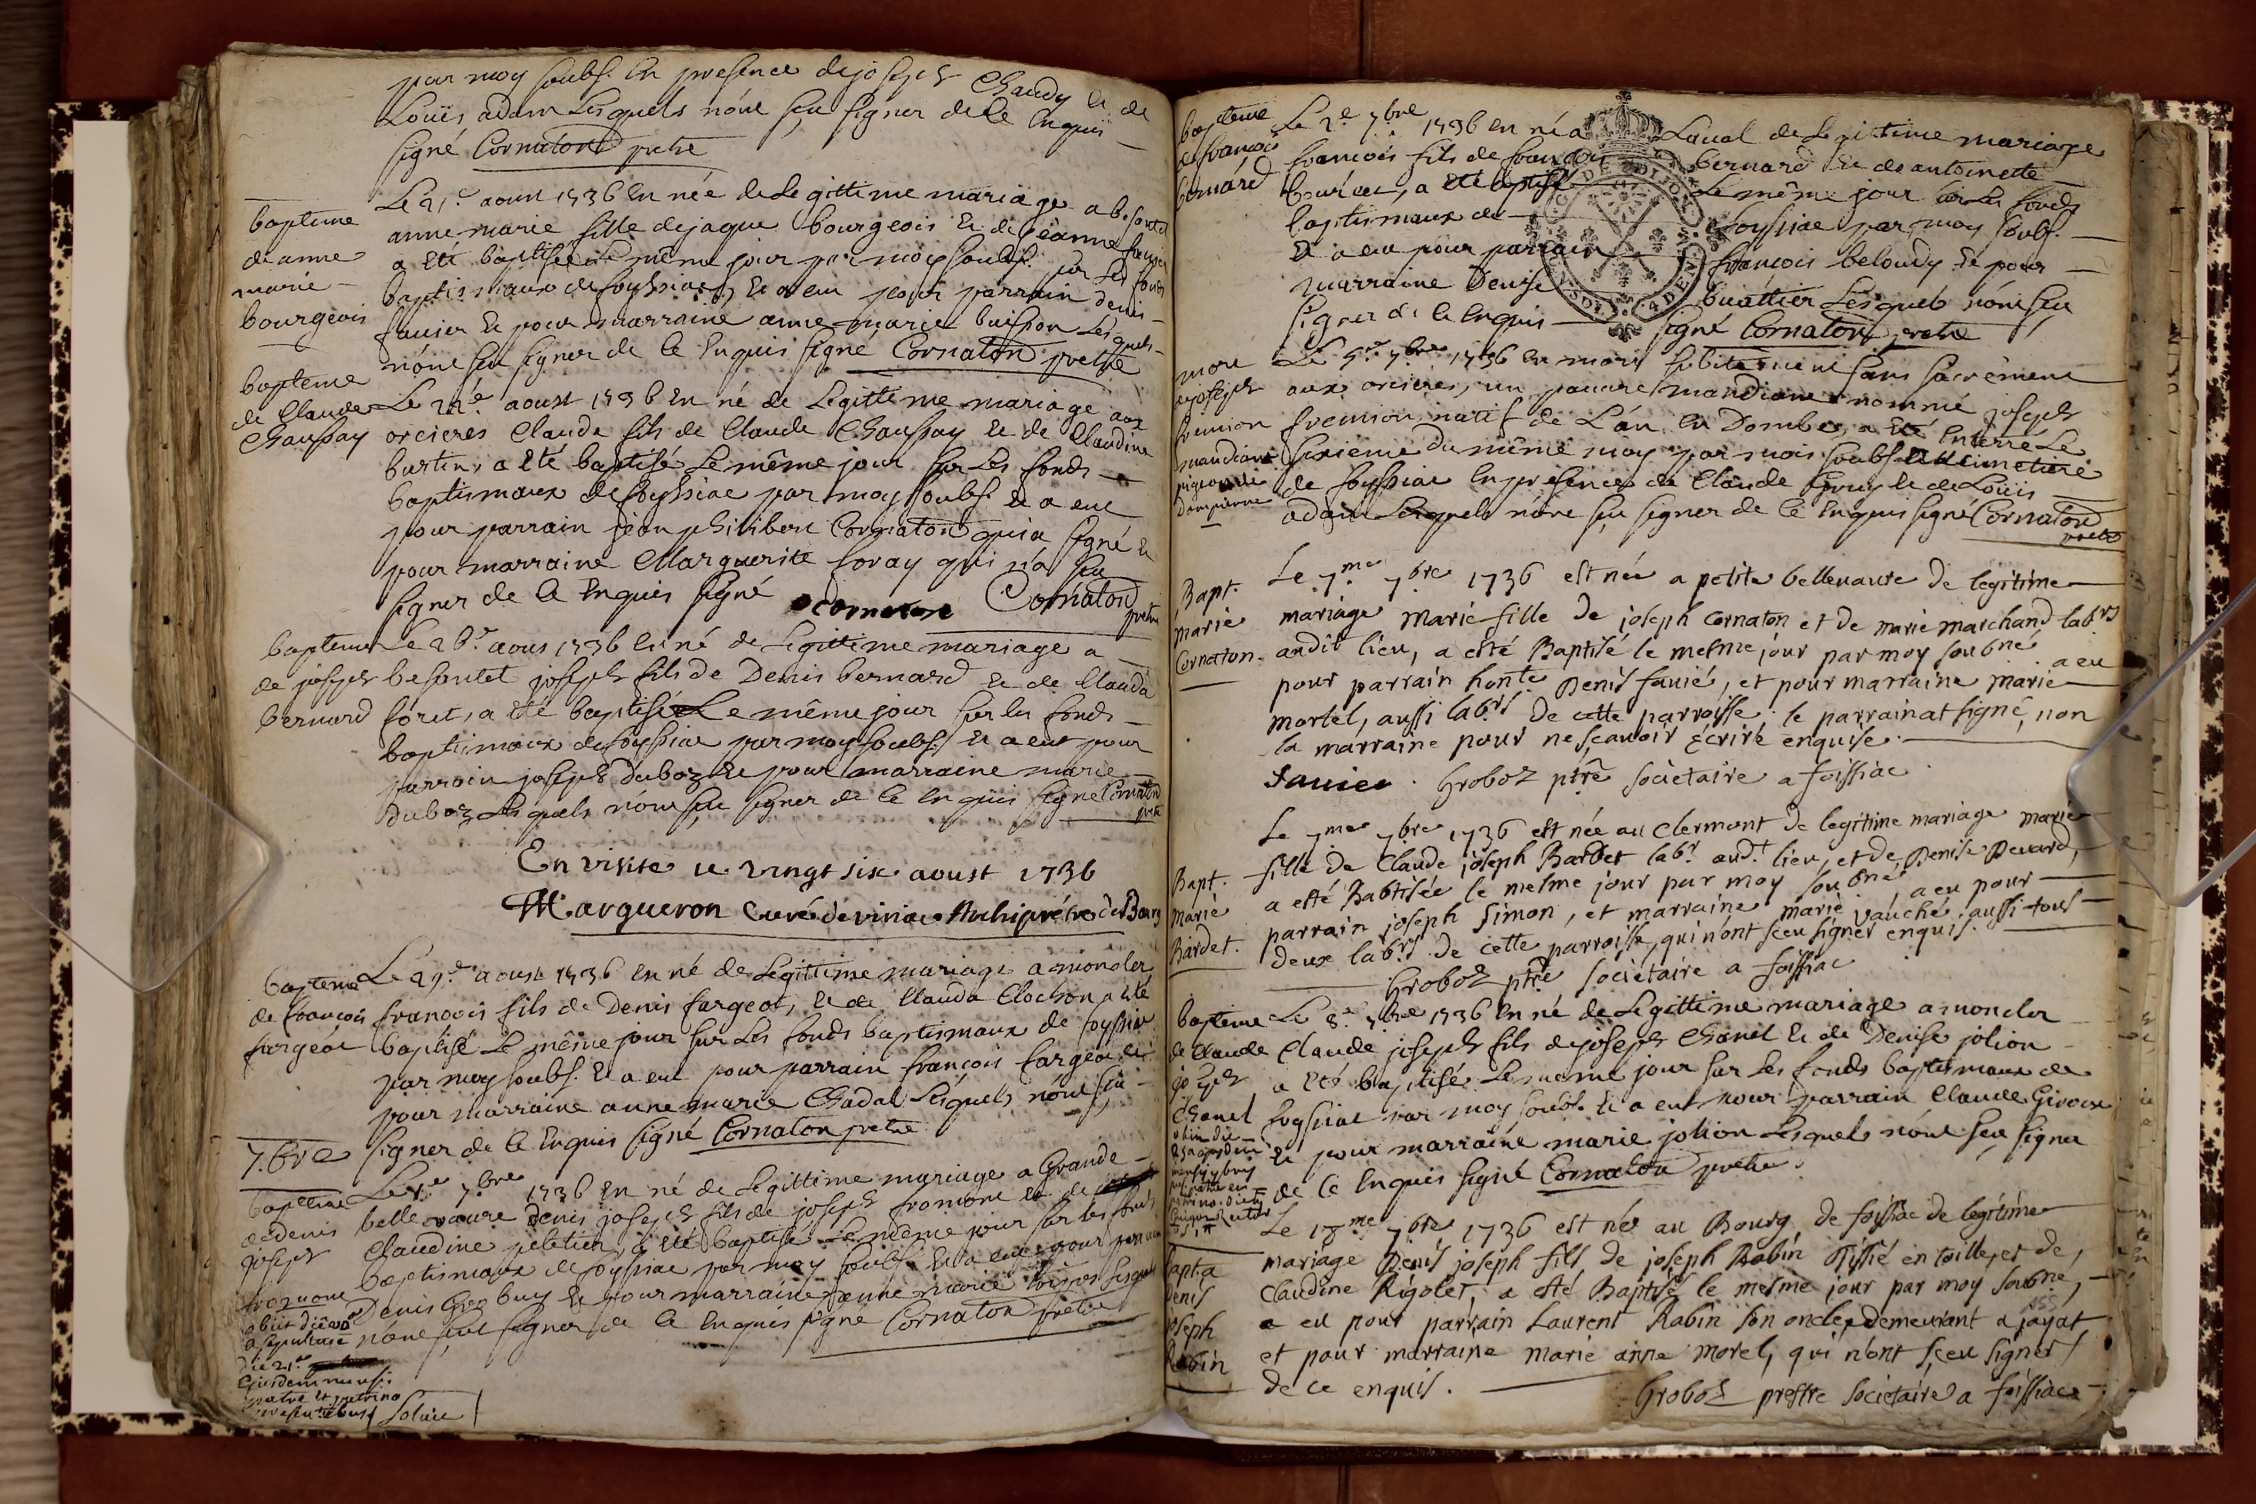 par moy soubs. En presence de joseph Chaudy Et de
Louïs adam Lesquels n'ont sçu signer de ce Enquis
signé Cornaton pretre
bapteme
de anne
marie
bourgeois
Le 21.e aoust 1736 Est née de Legittime mariage a besontet
anne marie fille de jaque bourgeois Et de jeanne
a Eté baptisée Le même jour par moy soubs. sur Les fonds
baptismaux de foyssiac, Et a eu pour parrain denis
fauier Et pour marraine anne marie buission Lesquels
n'ont sçu signer de ce Enquis signé Cornaton pretre
bapteme
de Claude
Chaussay
Le 22.e aoust 1736 Est né de Legittime mariage aux
orcieres Claude fils de Claude Chaussay Et de Claudine
burtin, a Eté baptisé Le même jour sur Les fonds
baptismaux de foyssiac par moy soubs. Et a eut
pour parrain jean philibert Cornaton qui a signé Et
pour marraine Marguerite foray qui n'a sçu
signer de ce Enquis signé Cornaton Cornaton
pretre
bapteme
de joseph
bernard
Le 26.e aous 1736 Est né de Legittime mariage a
besontet joseph fils de Denis bernard Et de Clauda
foret, a Eté baptisé Le même jour sur les fonds
baptismaux de foyssiac par moy soubs. Et a eut pour
parrain joseph duboz Et pour marraine marie
duboz Lesquels n'ont sçu signer de ce Enquis signé Cornaton
pretre
En visite ce vingt six aoust 1736
Margueron Curé de viriac Archiprétre de Bourg
bapteme
de françois
fargeot
Le 29.e aoust 1736 Est né de Legittime mariage a moncler
françois fils de Denis fargeot, Et de Clauda Clochon a Eté
baptisé Le même jour sur Les fonds baptismaux de foyssiac
par moy soubs. Et a eut pour parrain françois fargeot Et
pour marraine anne marie Chadal Lesquels n'ont sçu
signer de ce Enquis signé Cornaton pretre
7.bre
bapteme
de denis
joseph
fromont
obiit die 20a
a sepulture
die 21.a
Ejusdem mensis
patre Et patrino
presentibus
Solüe
Le 1.e 7.bre 1736 Est né de Legittime mariage a Grande
bellevavre denis joseph fils de joseph fromont Et de
Claudine peletier, a Eté baptisé Le même jour sur les fonds
baptismaux de foyssiac par moy soubs. Et a eut pour parrain
Denis buy Et pour marraine anne marie Lesquels
n'ont sçut signer de ce Enquis signé Cornaton pretre
bapteme
de françois
bernard
Le 2.e 7.bre 1736 Est né a Laual de Legittime mariage
françois fils de françois bernard Et de antoinette
a Eté baptisé Le même jour sur Les fonds
baptismaux de foyssiac par moy soubs.
Et a eu pour parrain françois beloudy Et pour
marraine Denise buattier Lesquels n'ont sçu
signer de ce Enquis signé Cornaton pretre
mort
de joseph
fremion
mandiant
Le 5.e 7.bre 1736 Est mort subitement sans sacrement
aux orcieres, un pauure mandiant nommé joseph
fremion natif de L'an En Dombes, a Eté Enterré Le
sixieme du même moy par moy soubs. au cimetiere
de foyssiac En presence de Claude Gruy Et de Louïs
adam Lesquels n'ont sçu signer de ce Enquis signé Cornaton
pretre
Bapt.
Marie
Cornaton.
Le 7.me 7.bre 1736 est née a petite bellevaure de legitime
mariage Marie fille de joseph Cornaton et de marie marchand lab.rs
audit lieu, a esté Baptisé le mesme jour par moy soubné a eu
pour parrain hon.te Denis fauié, et pour marraine marie
mortel, aussi lab.rs de cette parroisse; le parrain at signé, non
la marraine pour ne sçauoir écrire enquise.
fauier. Groboz ptre societaire a foissiac
Bapt.
Marie
Bardet.
Le 7.me 7.bre 1736 est née au Clermont de legitime mariage marie
fille de Claude joseph Bardet lab.r aud.t lieu, et de Denise Deuard,
a esté Baptisée le mesme jour par moy soubné, a eu pour
parrain joseph Simon, et marraine marie vauché, aussi tous
deux lab.rs de cette parroisse, qui n'ont sceu signer enquis.
Groboz ptre societaire a foissiac
bapteme
de Claude
joseph
Chanel
Le 8.e 7.bre 1736 Est né de Legittime mariage a moncler
Claude joseph fils de joseph Chanel Et de Denise jolion
a Eté baptisé Le même jour sur Les fonds baptismaux de
foyssiac par moy soubs. Et a eut pour parrain Claude Giroux
Et pour marraine marie jolion Lesquels n'ont sçu signer
de ce Enquis signé Cornaton pretre.
Bapt. a
Denis
joseph
Rabin
Le 18.me 7.bre 1736 est né au Bourg de foissiac de legitime
mariage Denis joseph fils de joseph Rabin Tissié en toille, et de
Claudine Rigolet, a esté Baptisé le mesme jour par moy soubné,
a eu pour parrain Laurent Rabin son oncle, demeurant a jayat
et pour marraine marie anne Morel, qui n'ont sçeu signer
de ce enquis. Groboz prestre societaire a foissiac